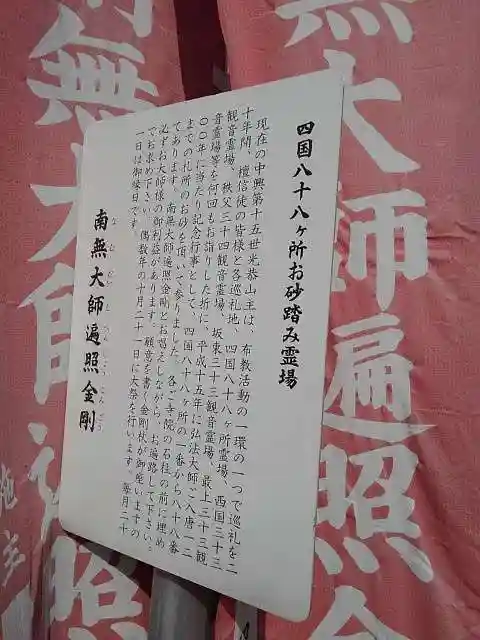 四国八十八ヶ所お砂踏み霊場
現在の中興第十五世光恭山主は、布教活動の一環の一つで巡礼を二
十年間、檀信徒の皆様と各巡礼地、四国八十八ヶ所霊場、西国三十三
観音霊場、秩父三十四観音霊場、坂東三十三観音霊場、最上三十三観
音霊場等を何回もお詣りした折に、平成十五年に弘法大師ご入唐一二
〇〇年に当たり記念行事として、四国八十八ヶ所の一番から八十八番
までの札所のお砂を頂いて参りました。各ご寺院の石柱の前に埋め
てあります。南無大師遍照金剛とお唱えしながら、お遍路して下さい。
必ずお大師様の御利益があります。願意を書く金剛秋が御座いますの
でお求め下さい。偶数年の十月二十一日に大祭を行います。毎月二十
一日は御縁日です。
南無大師遍照金剛
なむだいしへんじょうこんごう
無大師遍照金
南無大師遍
施主